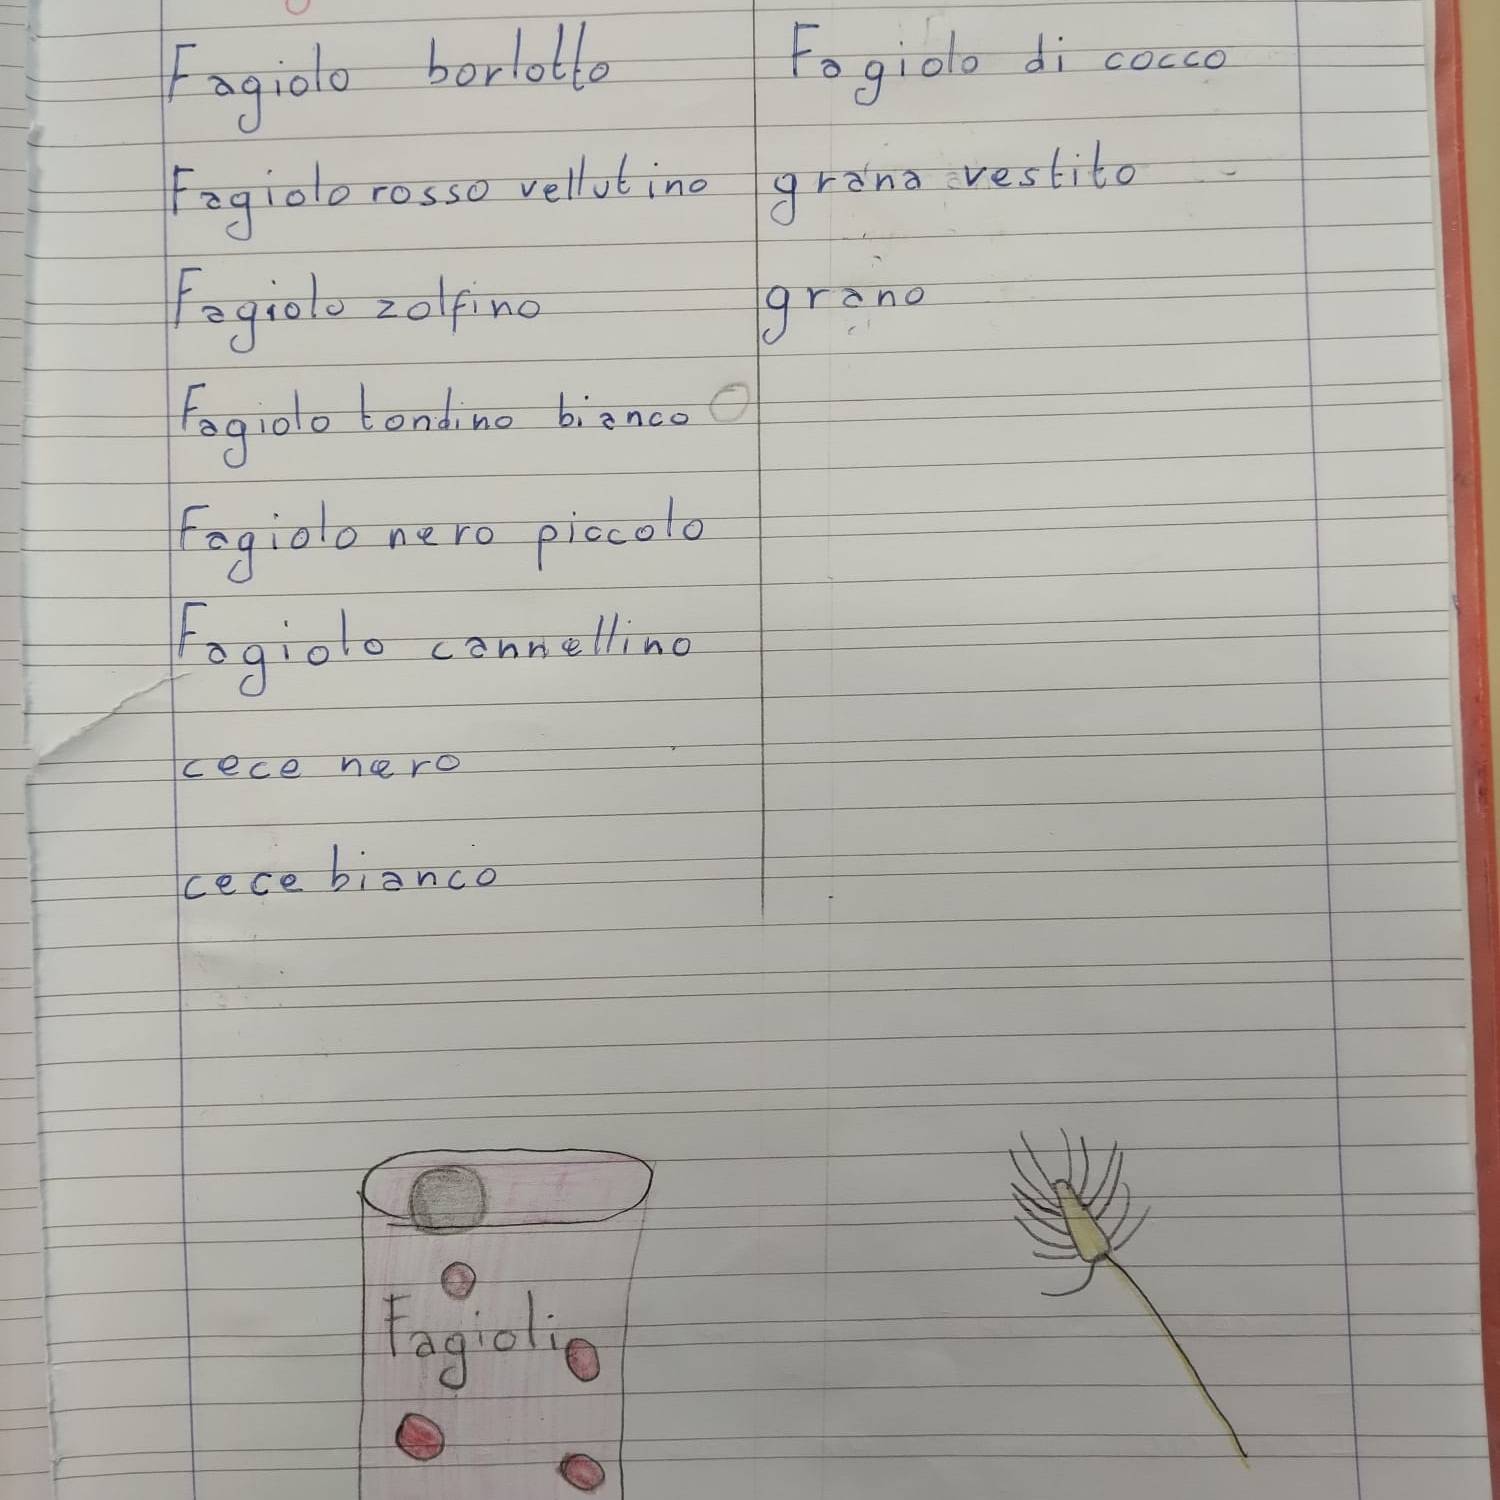 Fagiolo borlotto
Fagiolo rosso vellutino
Fagiolo zolfino
Fagiolo tondino bianco
Fagiolo nero piccolo
Fagiolo cannellino
cece nero
cece bianco
Fagiolo di cocco
grana vestito
grano
Fagioli